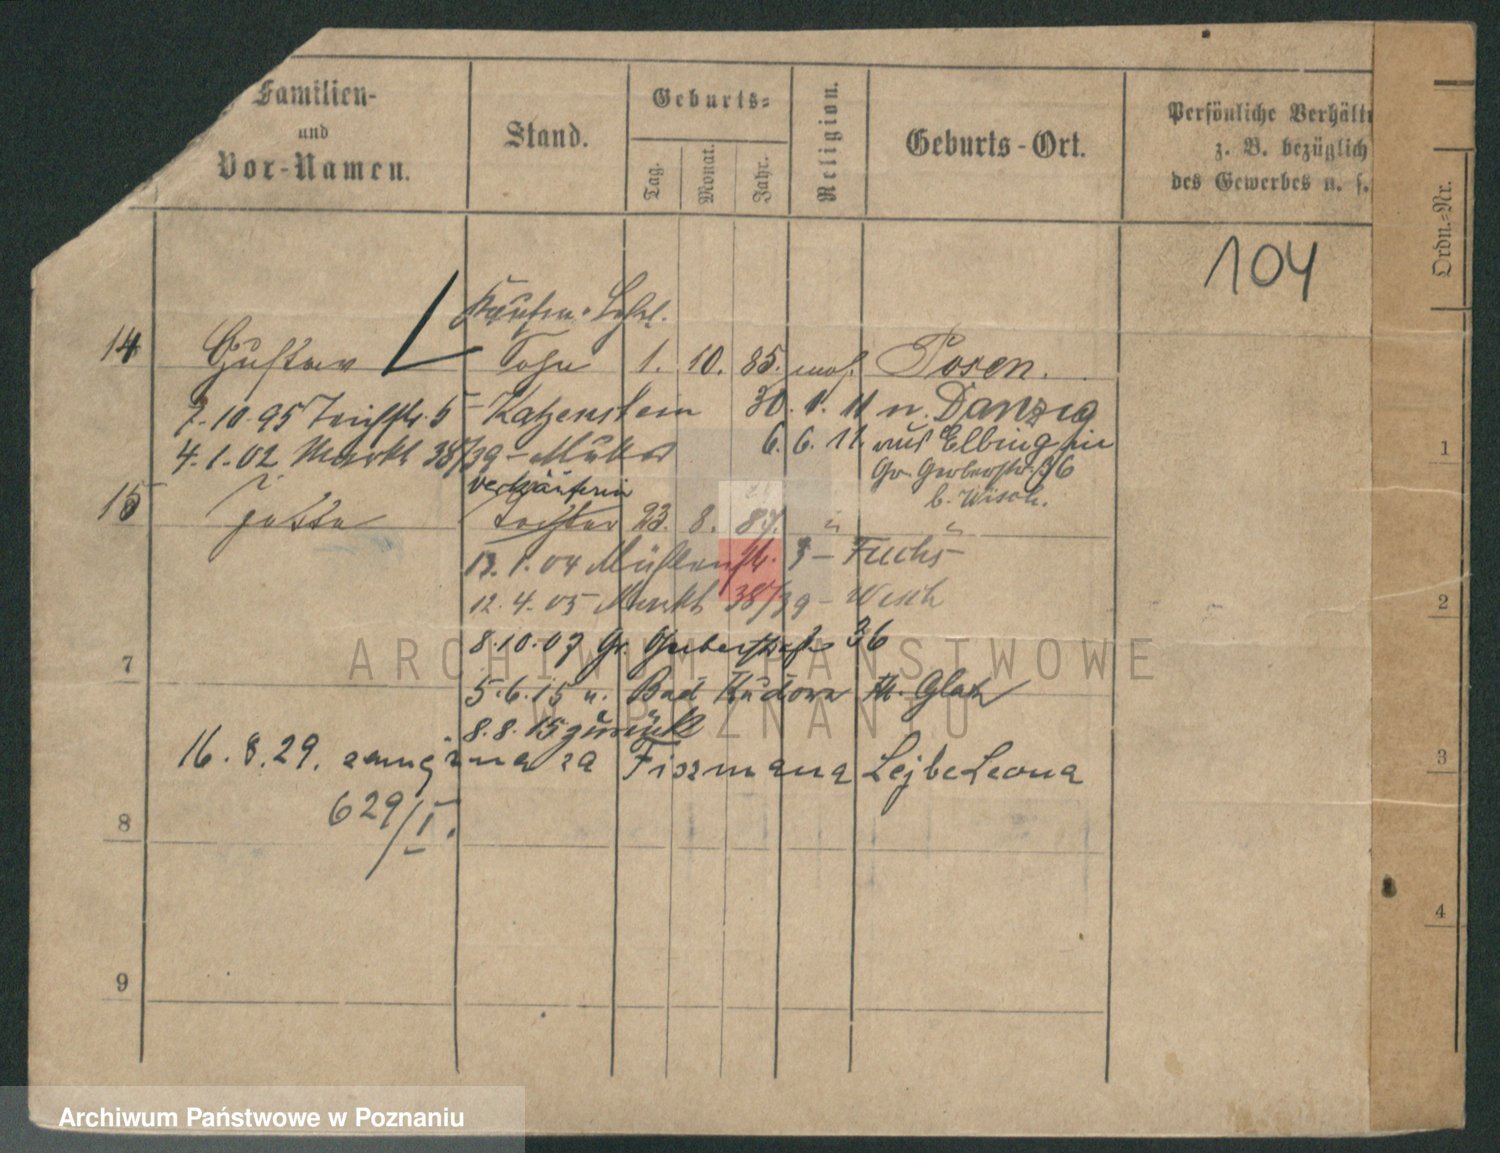 Familien-
und
Vor-Namen.
Stand.
Geburts-
Tag.
Monat.
Jahr.
Religion.
Geburts-Ort.
Persönliche Verhält
z. B. bezüglich
des Gewerbes u. s.
Ordn.-Nr.
104
14 Gustav Sohn 1. 10. 85. mos. Posen.
7.10.95 5 - Katzenstein 30. 1. 11 n. Danzig
4.1.02 Markt 38/39 - 6. 6. 11 aus Elbing
Gr. Gerberstr. 36
b. Wisch.
Verkäuferin
15 Tochter 23. 8. 87. "
13.1.04 Mühlenstr. 3 - Fuchs -
12.4.05 Markt 38/39 - Wisch
8.10.07 Gr. Gerberstraße 36
5.6.15 n. Bad Kudowa Kr. Glatz
8.8.15 zurück
16.8.29. zamężna za Fiszmana Lejbe Leona
629/I.
7
8
9
1
2
3
4
ARCHIWUM PAŃSTWOWE
W POZNANIU
Archiwum Państwowe w Poznaniu